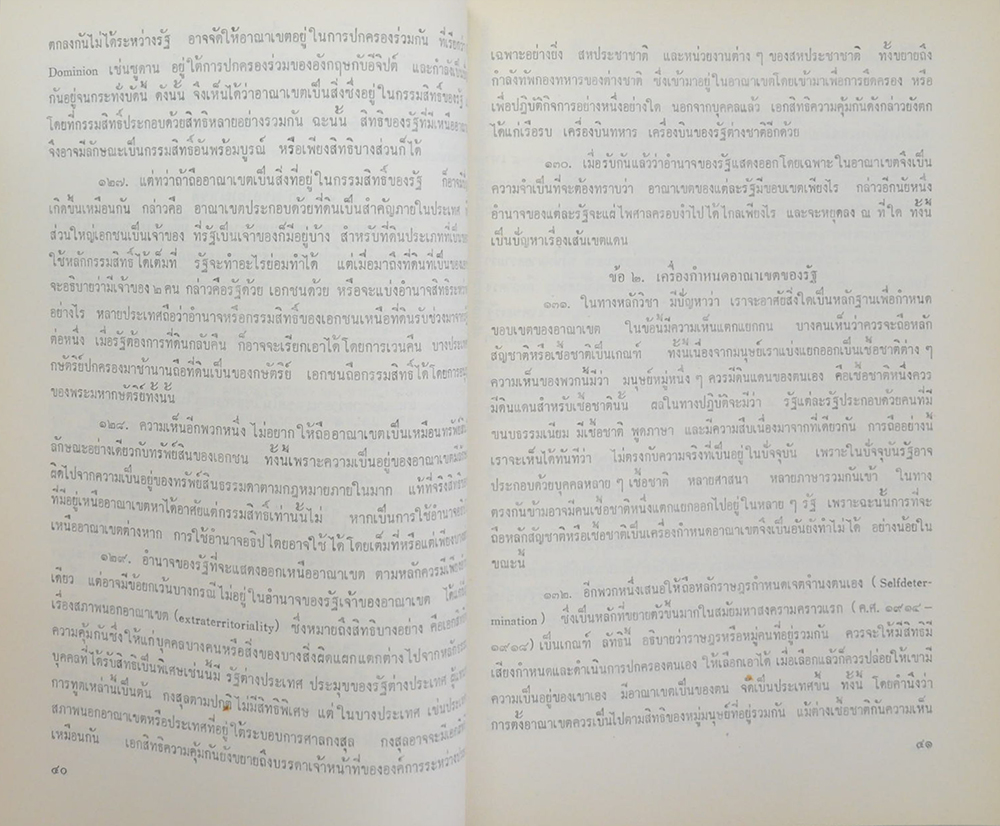 ตกลงกันไม่ได้ระหว่างรัฐ อาจจัดให้อาณาเขตอยู่ในการปกครองร่วมกัน ที่เรียกว่า
Dominion เช่นซูดาน อยู่ใต้การปกครองร่วมขององกฤษกับอียิปต์ และกำลังเป็น
กันอยู่จนกระทั่งบัดนี้ ดังนั้น จึงเห็นได้ว่าอาณาเขตเป็นสิ่งซึ่งอยู่ในกรรมสิทธิ์ของรัฐ
โดยที่กรรมสิทธิ์ประกอบด้วยสิทธิหลายอย่างรวมกัน ฉะนั้น สิทธิของรัฐที่มีเหนืออาณา
จึงอาจมีลักษณะเป็นกรรมสิทธิ์อันพร้อมบูรณ์ หรือเพียงสิทธิบางส่วนก็ได้
๑๒๗. แต่ทว่าถ้าถืออาณาเขตเป็นสิ่งที่อยู่ในกรรมสิทธิ์ของรัฐ ก็อาจมี
เกิดขึ้นเหมือนกัน กล่าวคือ อาณาเขตประกอบด้วยที่ดินเป็นสำคัญภายในประเทศ
ส่วนใหญ่เอกชนเป็นเจ้าของ ที่รัฐเป็นเจ้าของก็มีอยู่บ้าง สำหรับที่ดินประเภทที่เป็น
ใช้หลักกรรมสิทธิ์ได้เต็มที่ รัฐจะทำอะไรย่อมทำได้ แต่เมื่อมาถึงที่ดินที่เป็นของ
จะอธิบายว่ามีเจ้าของ ๒ คน กล่าวคือรัฐด้วย เอกชนด้วย หรือจะแบ่งอำนาจสิทธิระหว่าง
อย่างไร หลายประเทศถือว่าอำนาจหรือกรรมสิทธิ์ของเอกชนเหนือที่ดินรับช่วงมาจาก
ต่อหนึ่ง เมื่อรัฐต้องการที่ดินกลับคืน ก็อาจจะเรียกเอาได้โดยการเวนคืน บางประเทศ
กษัตริย์ปกครองมาช้านานถือที่ดินเป็นของกษัตริย์ เอกชนถือกรรมสิทธิ์ได้โดยการ
ของพระมหากษัตริย์ทั้งนั้น
๑๒๘. ความเห็นอีกพวกหนึ่ง ไม่อยากให้ถืออาณาเขตเป็นเหมือนทรัพย์สิน
ลักษณะอย่างเดียวกับทรัพย์สินของเอกชน ทั้งนี้เพราะความเป็นอยู่ของอาณาเขต
ผิดไปจากความเป็นอยู่ของทรัพย์สินธรรมดาตามกฎหมายภายในมาก แท้ที่จริงสิทธิ
ที่มีอยู่เหนืออาณาเขตหาได้อาศัยแต่กรรมสิทธิ์เท่านั้นไม่ หากเป็นการใช้อำนาจ
เหนืออาณาเขตต่างหาก การใช้อำนาจอธิปไตยอาจใช้ได้โดยเต็มที่หรือแต่เพียงบาง
๑๒๙. อำนาจของรัฐที่จะแสดงออกเหนืออาณาเขต ตามหลักควรมีเพียง
เดียว แต่อาจมีข้อยกเว้นบางกรณีไม่อยู่ในอำนาจของรัฐเจ้าของอาณาเขต ได้แก่
เรื่องสภาพนอกอาณาเขต (extraterritoriality) ซึ่งหมายถึงสิทธิบางอย่าง คือเอกสิทธิ์
ความคุ้มกันซึ่งให้แก่บุคคลบางคนหรือสิ่งของบางสิ่งผิดแผกแตกต่างไปจากหลัก
บุคคลที่ได้รับสิทธิเป็นพิเศษเช่นนี้มี รัฐต่างประเทศ ประมุขของรัฐต่างประเทศ ผู้แทน
การทูตเหล่านี้เป็นต้น กงสุลตามปกติไม่มีสิทธิพิเศษ แต่ในบางประเทศ เช่นประเทศ
สภาพนอกอาณาเขตหรือประเทศที่อยู่ใต้ระบอบการศาลกงสุล กงสุลอาจจะมีเอกสิทธิ์
เหมือนกัน เอกสิทธิ์ความคุ้มกันยังขยายถึงบรรดาเจ้าหน้าที่ขององค์การระหว่าง
๔๐
เฉพาะอย่างยิ่ง สหประชาชาติ และหน่วยงานต่าง ๆ ของสหประชาชาติ ทั้งขยายถึง
กำลังทัพกองทหารของต่างชาติ ซึ่งเข้ามาอยู่ในอาณาเขตโดยเข้ามาเพื่อการยึดครอง หรือ
เพื่อปฏิบัติกิจการอย่างหนึ่งอย่างใด นอกจากบุคคลแล้ว เอกสิทธิความคุ้มกันดังกล่าวยังตก
ได้แก่เรือรบ เครื่องบินทหาร เครื่องบินของรัฐต่างชาติอีกด้วย
๑๓๐. เมื่อรับกันแล้วว่าอำนาจของรัฐแสดงออกโดยเฉพาะในอาณาเขตจึงเป็น
ความจำเป็นที่จะต้องทราบว่า อาณาเขตของแต่ละรัฐมีขอบเขตเพียงไร กล่าวอีกนัยหนึ่ง
อำนาจของแต่ละรัฐจะแผ่ไพศาลครอบงำไปได้ไกลเพียงไร และจะหยุดลง ณ ที่ใด ทั้งนี้
เป็นปัญหาเรื่องเส้นเขตแดน
ข้อ ๒. เครื่องกำหนดอาณาเขตของรัฐ
๑๓๑. ในทางหลักวิชา มีปัญหาว่า เราจะอาศัยสิ่งใดเป็นหลักฐานเพื่อกำหนด
ขอบเขตของอาณาเขต ในข้อนี้มีความเห็นแตกแยกกน บางคนเห็นว่าควรจะถือหลัก
สัญชาติหรือเชื้อชาติเป็นเกณฑ์ ทั้งนี้เนื่องจากมนุษย์เราแบ่งแยกออกเป็นเชื้อชาติต่าง ๆ
ความเห็นของพวกนี้มีว่า มนุษย์หมู่หนึ่ง ๆ ควรมีดินแดนของตนเอง คือเชื้อชาติหนึ่งควร
มีดินแดนสำหรับเชื้อชาตินั้น ผลในทางปฏิบัติจะมีว่า รัฐแต่ละรัฐประกอบด้วยคนที่มี
ขนบธรรมเนียม มีเชื้อชาติ พูดภาษา และมีความสืบเนื่องมาจากที่เดียวกัน การถืออย่างนี้
เราจะเห็นได้ทันทีว่า ไม่ตรงกับความจริงที่เป็นอยู่ในปัจจุบัน เพราะในปัจจุบันรัฐอาจ
ประกอบด้วยบุคคลหลาย ๆ เชื้อชาติ หลายศาสนา หลายภาษารวมกันเข้า ในทาง
ตรงกันข้ามอาจมีคนเชื้อชาติหนึ่งแตกแยกออกไปอยู่ในหลาย ๆ รัฐ เพราะฉะนั้นการที่จะ
ถือหลักสัญชาติหรือเชื้อชาติเป็นเครื่องกำหนดอาณาเขตจึงเป็นอันยังทำไม่ได้ อย่างน้อยใน
ขณะนี้
๑๓๒. อีกพวกหนึ่งเสนอให้ถือหลักราษฎรกำหนดเจตจำนงตนเอง (Selfdeter-
mination) ซึ่งเป็นหลักที่ขยายตัวขึ้นมากในสมัยมหาสงครามคราวแรก (ค.ศ. ๑๙๑๔ –
๑๙๑๘) เป็นเกณฑ์ ลัทธินี้ อธิบายว่าราษฎรหรือหมู่คนที่อยู่รวมกัน ควรจะให้มีสิทธิมี
เสียงกำหนดและดำเนินการปกครองตนเอง ให้เลือกเอาได้ เมื่อเลือกแล้วก็ควรปล่อยให้เขามี
ความเป็นอยู่ของเขาเอง มีอาณาเขตเป็นของตน จัดเป็นประเทศขึ้น ทั้งนี้ โดยคำนึงว่า
การตั้งอาณาเขตควรเป็นไปตามสิทธิของหมู่มนุษย์ที่อยู่รวมกัน แม้ต่างเชื้อชาติกันความเห็น
๔๑